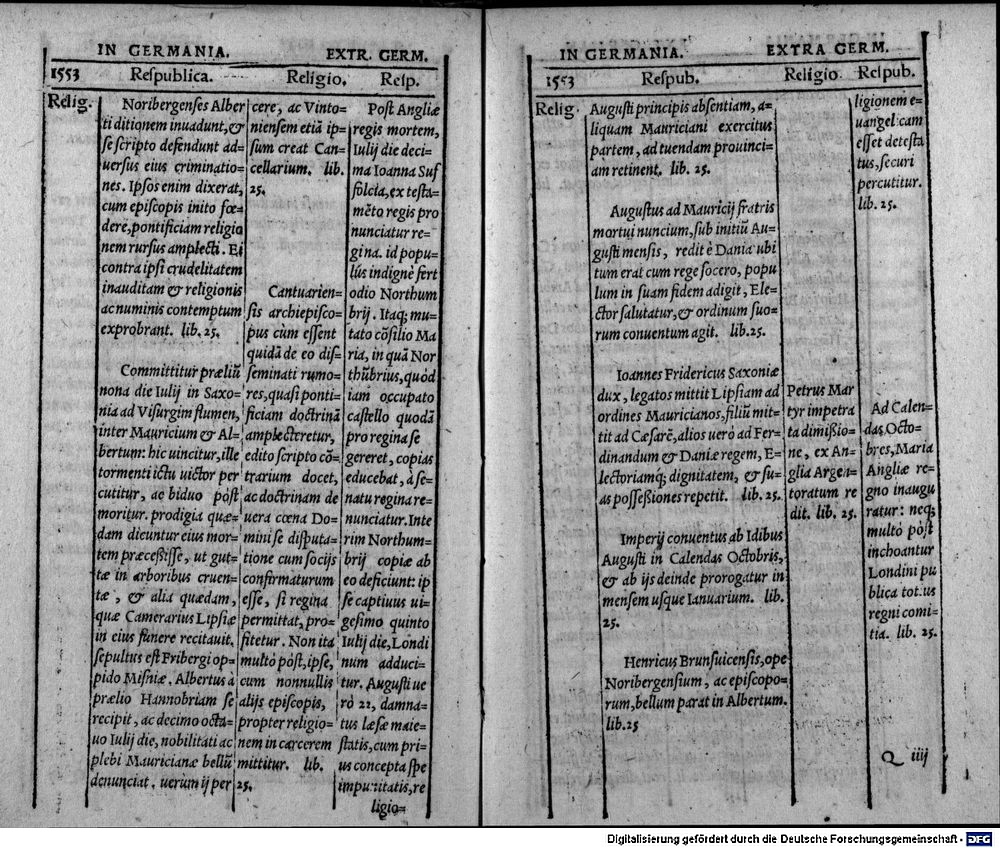 IN GERMANIA.
EXTR. GERM.
1553
Respublica.
Religio.
Resp.
Relig.
Noribergenses Alber
ti ditionem inuadunt, &
se scripto defendunt ad-
uersus eius criminatio-
nes. Ipsos enim dixerat,
cum episcopis inito fœ-
dere, pontificiam religio
nem rursus amplecti. Ei
contra ipsi crudelitatem
inauditam & religionis
ac numinis contemptum
exprobrant. lib. 25.
Committitur præliũ
nona die Iulij in Saxo-
nia ad Visurgim flumen,
inter Mauricium & Al-
bertum: hic uincitur, ille
tormenti ictu uictor per
cutitur, ac biduo pòst
moritur. prodigia quæ-
dam dicuntur eius mor-
tem præcessisse, ut gut-
tæ in arboribus cruen-
tæ, & alia quædam,
quæ Camerarius Lipsiæ
in eius funere recitauit.
sepultus est Fribergi op-
pido Misniæ. Albertus à
prælio Hannobriam se
recipit, ac decimo octa-
uo Iulij die, nobilitati ac
plebi Mauricianæ bellũ
denunciat. uerùm ij per
cere, ac Vinto-
niensem etiã ip-
sum creat Can-
cellarium. lib.
25.
Cantuarien-
sis archiepisco-
pus cùm essent
quidã de eo dis-
seminati rumo-
res, quasi ponti-
ficiam doctrinã
amplecteretur,
edito scripto cõ-
trarium docet,
ac doctrinam de
uera cœna Do-
mini se disputa-
tione cum socijs
confirmaturum
esse, si regina
permittat, pro-
fitetur. Non ita
multo pòst, ipse,
cum nonnullis
alijs episcopis,
propter religio-
nem in carcerem
mittitur. lib.
25.
Post Angliæ
regis mortem,
Iulij die deci-
ma Ioanna Suf
folcia, ex testa-
mẽto regis pro
nunciatur re-
gina. id popu-
lus indignè fert
odio Northum
brij. Itaq; mu-
tato cõsilio Ma
ria, in quã Nor
thũbrius, quòd
iam occupato
castello quodã
pro regina se
gereret, copias
educebat, à se-
natu regina re-
nunciatur. Inte
rim Northum-
brij copiæ ab
eo deficiunt: ip
se captiuus ui-
gesimo quinto
Iulij die, Londi
num adduci-
tur. Augusti ue
rò 22, damna-
tus læsæ maie-
statis, cum pri-
us concepta spe
impunitatis, re
ligio-
IN GERMANIA.
EXTRA GERM.
1553
Respub.
Religio
Respub.
Relig.
Augusti principis absentiam, a-
liquam Mauriciani exercitus
partem, ad tuendam prouinci-
am retinent. lib. 25.
Augustus ad Mauricij fratris
mortui nuncium, sub initiũ Au-
gusti mensis, redit è Dania ubi
tum erat cum rege socero, popu
lum in suam fidem adigit, Ele-
ctor salutatur, & ordinum suo-
rum conuentum agit. lib. 25.
Ioannes Fridericus Saxoniæ
dux, legatos mittit Lipsiam ad
ordines Mauricianos, filiũ mit-
tit ad Cæsarẽ, alios uerò ad Fer-
dinandum & Daniæ regem, E-
lectoriamq; dignitatem, & su-
as possessiones repetit. lib. 25.
Imperij conuentus ab Idibus
Augusti in Calendas Octobris,
& ab ijs deinde prorogatur in
mensem usque Ianuarium. lib.
25.
Henricus Brunsuicensis, ope
Noribergensium, ac episcopo-
rum, bellum parat in Albertum.
lib. 25
Petrus Mar
tyr impetra
ta dimissio-
ne, ex An-
glia Argen-
toratum re
dit. lib. 25.
ligionem e-
uangelicam
esset detesta
tus, securi
percutitur.
lib. 25.
Ad Calen-
das Octo-
bres, Maria
Angliæ re-
gno inaugu
ratur: neq;
multò pòst
inchoantur
Londini pu
blica totius
regni comi-
tia. lib. 25.
Q iiij
Digitalisierung gefördert durch die Deutsche Forschungsgemeinschaft - DFG